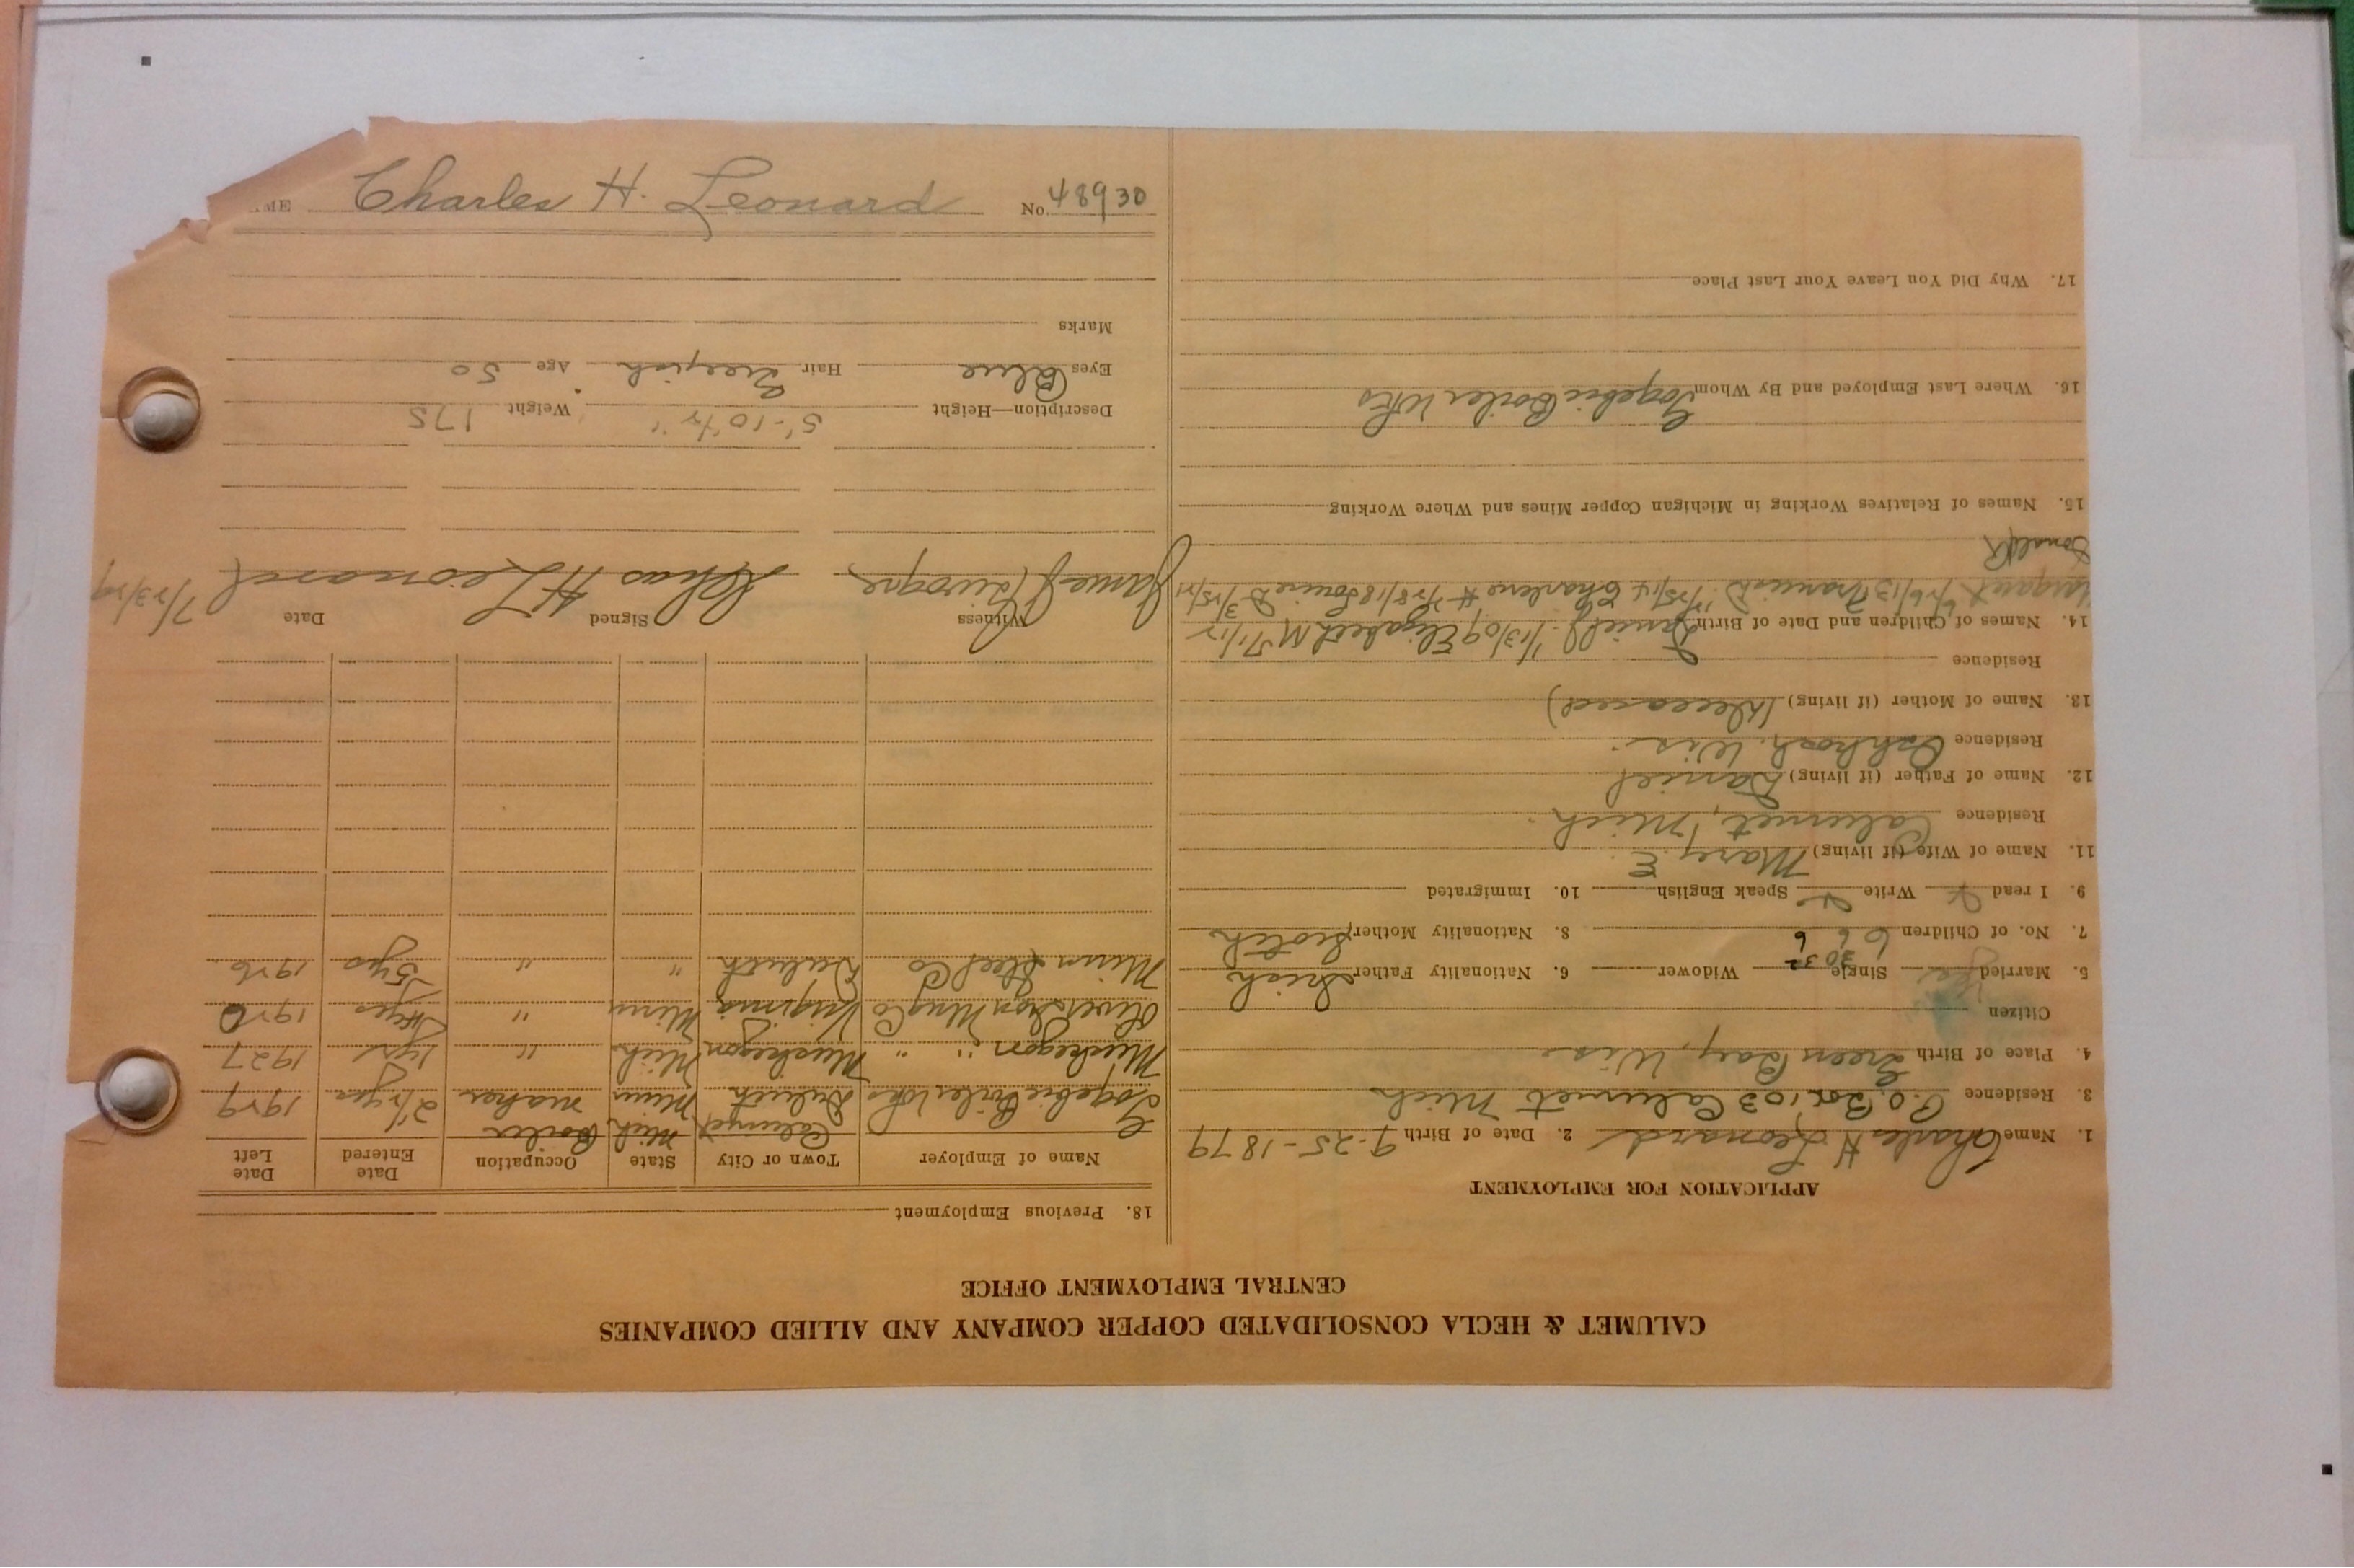 CALUMET & HECLA CONSOLIDATED COPPER COMPANY AND ALLIED COMPANIES
CENTRAL EMPLOYMENT OFFICE
APPLICATION FOR EMPLOYMENT
1. Name Charles H Leonard 2. Date of Birth 9-25-1879
3. Residence P.O. Box 103 Calumet Mich
4. Place of Birth Green Bay, Wis.
Citizen
5. Married Yes Single Widower 6. Nationality Father Irish
30 32
7. No. of Children 6 6 6 8. Nationality Mother Scotch
9. I read Write Speak English 10. Immigrated
11. Name of Wife (if living) Mary E.
Residence Calumet, Mich.
12. Name of Father (if living) Daniel
Residence Oshkosh. Wis.
13. Name of Mother (if living) (Deceased)
Residence
14. Names of Children and Date of Birth Daniel J. 1/13/09 Elizabeth M
Margaret 6/26/13 Francis D. Charlene H Louise D
Donald R
15. Names of Relatives Working in Michigan Copper Mines and Where Working
16. Where Last Employed and By Whom Gogebic Boiler Wks
17. Why Did You Leave Your Last Place
18. Previous Employment
Name of Employer Town or City State Occupation Date Entered Date Left
Calumet Mich Boiler
Gogebic Boiler Wks Duluth Minn maker 2 1/2 yrs 1929
Muskegon " " Muskegon Mich " 1 yr 1927
Oliver Iron Mng Co Virginia Minn " yrs 1926
Minn Steel Co Duluth " " 5 yrs 1926
Witness Signed Date
James Chas H Leonard 7/23/29
Description—Height 5'-10 1/2" Weight 175
Eyes Blue Hair Greyish Age 50
Marks
ME Charles H. Leonard No. 48930